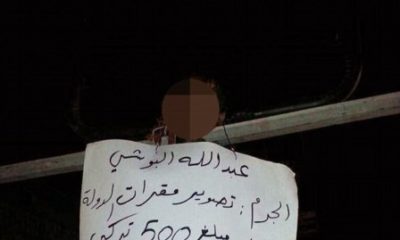 عبد الله البوشي
الجرم : تصوير مقرات الدولة
مبلغ 500 تركي